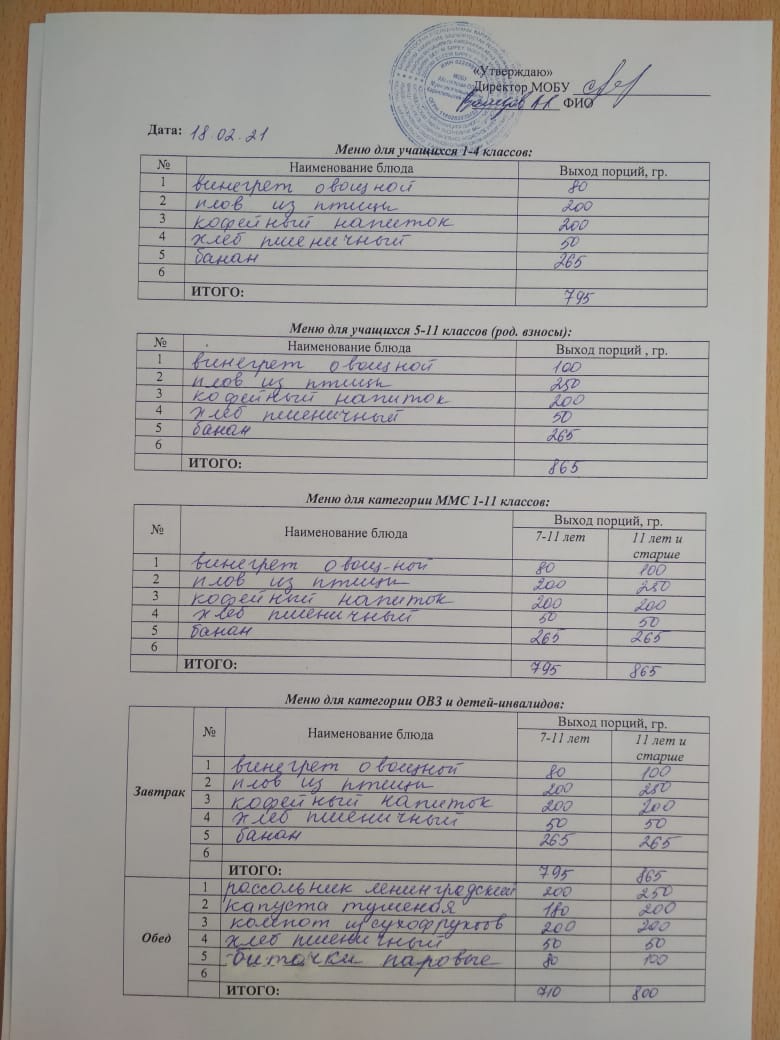 «Утверждаю»
Директор МОБУ
ФИО
Дата: 18.02.21
Меню для учащихся 1-4 классов:
№ Наименование блюда Выход порций, гр.
1 винегрет овощной 80
2 плов из птицы 200
3 кофейный напиток 200
4 хлеб пшеничный 50
5 банан 265
6
ИТОГО: 795
Меню для учащихся 5-11 классов (род. взносы):
№ Наименование блюда Выход порций , гр.
1 винегрет овощной 100
2 плов из птицы 250
3 кофейный напиток 200
4 хлеб пшеничный 50
5 банан 265
6
ИТОГО: 865
Меню для категории ММС 1-11 классов:
№ Наименование блюда Выход порций, гр.
7-11 лет 11 лет и
старше
1 винегрет овощ-ной 80 100
2 плов из птицы 200 250
3 кофейный напиток 200 200
4 хлеб пшеничный 50 50
5 банан 265 265
6
ИТОГО: 795 865
Меню для категории ОВЗ и детей-инвалидов:
№ Наименование блюда Выход порций, гр.
7-11 лет 11 лет и
старше
Завтрак
1 винегрет овощной 80 100
2 плов из птицы 200 250
3 кофейный напиток 200 200
4 хлеб пшеничный 50 50
5 банан 265 265
6
ИТОГО: 795 865
Обед
1 рассольник ленинградский 200 250
2 капуста тушеная 180 200
3 компот из сухофруктов 200 200
4 хлеб пшеничный 50 50
5 биточки паровые 80 100
6
ИТОГО: 710 800